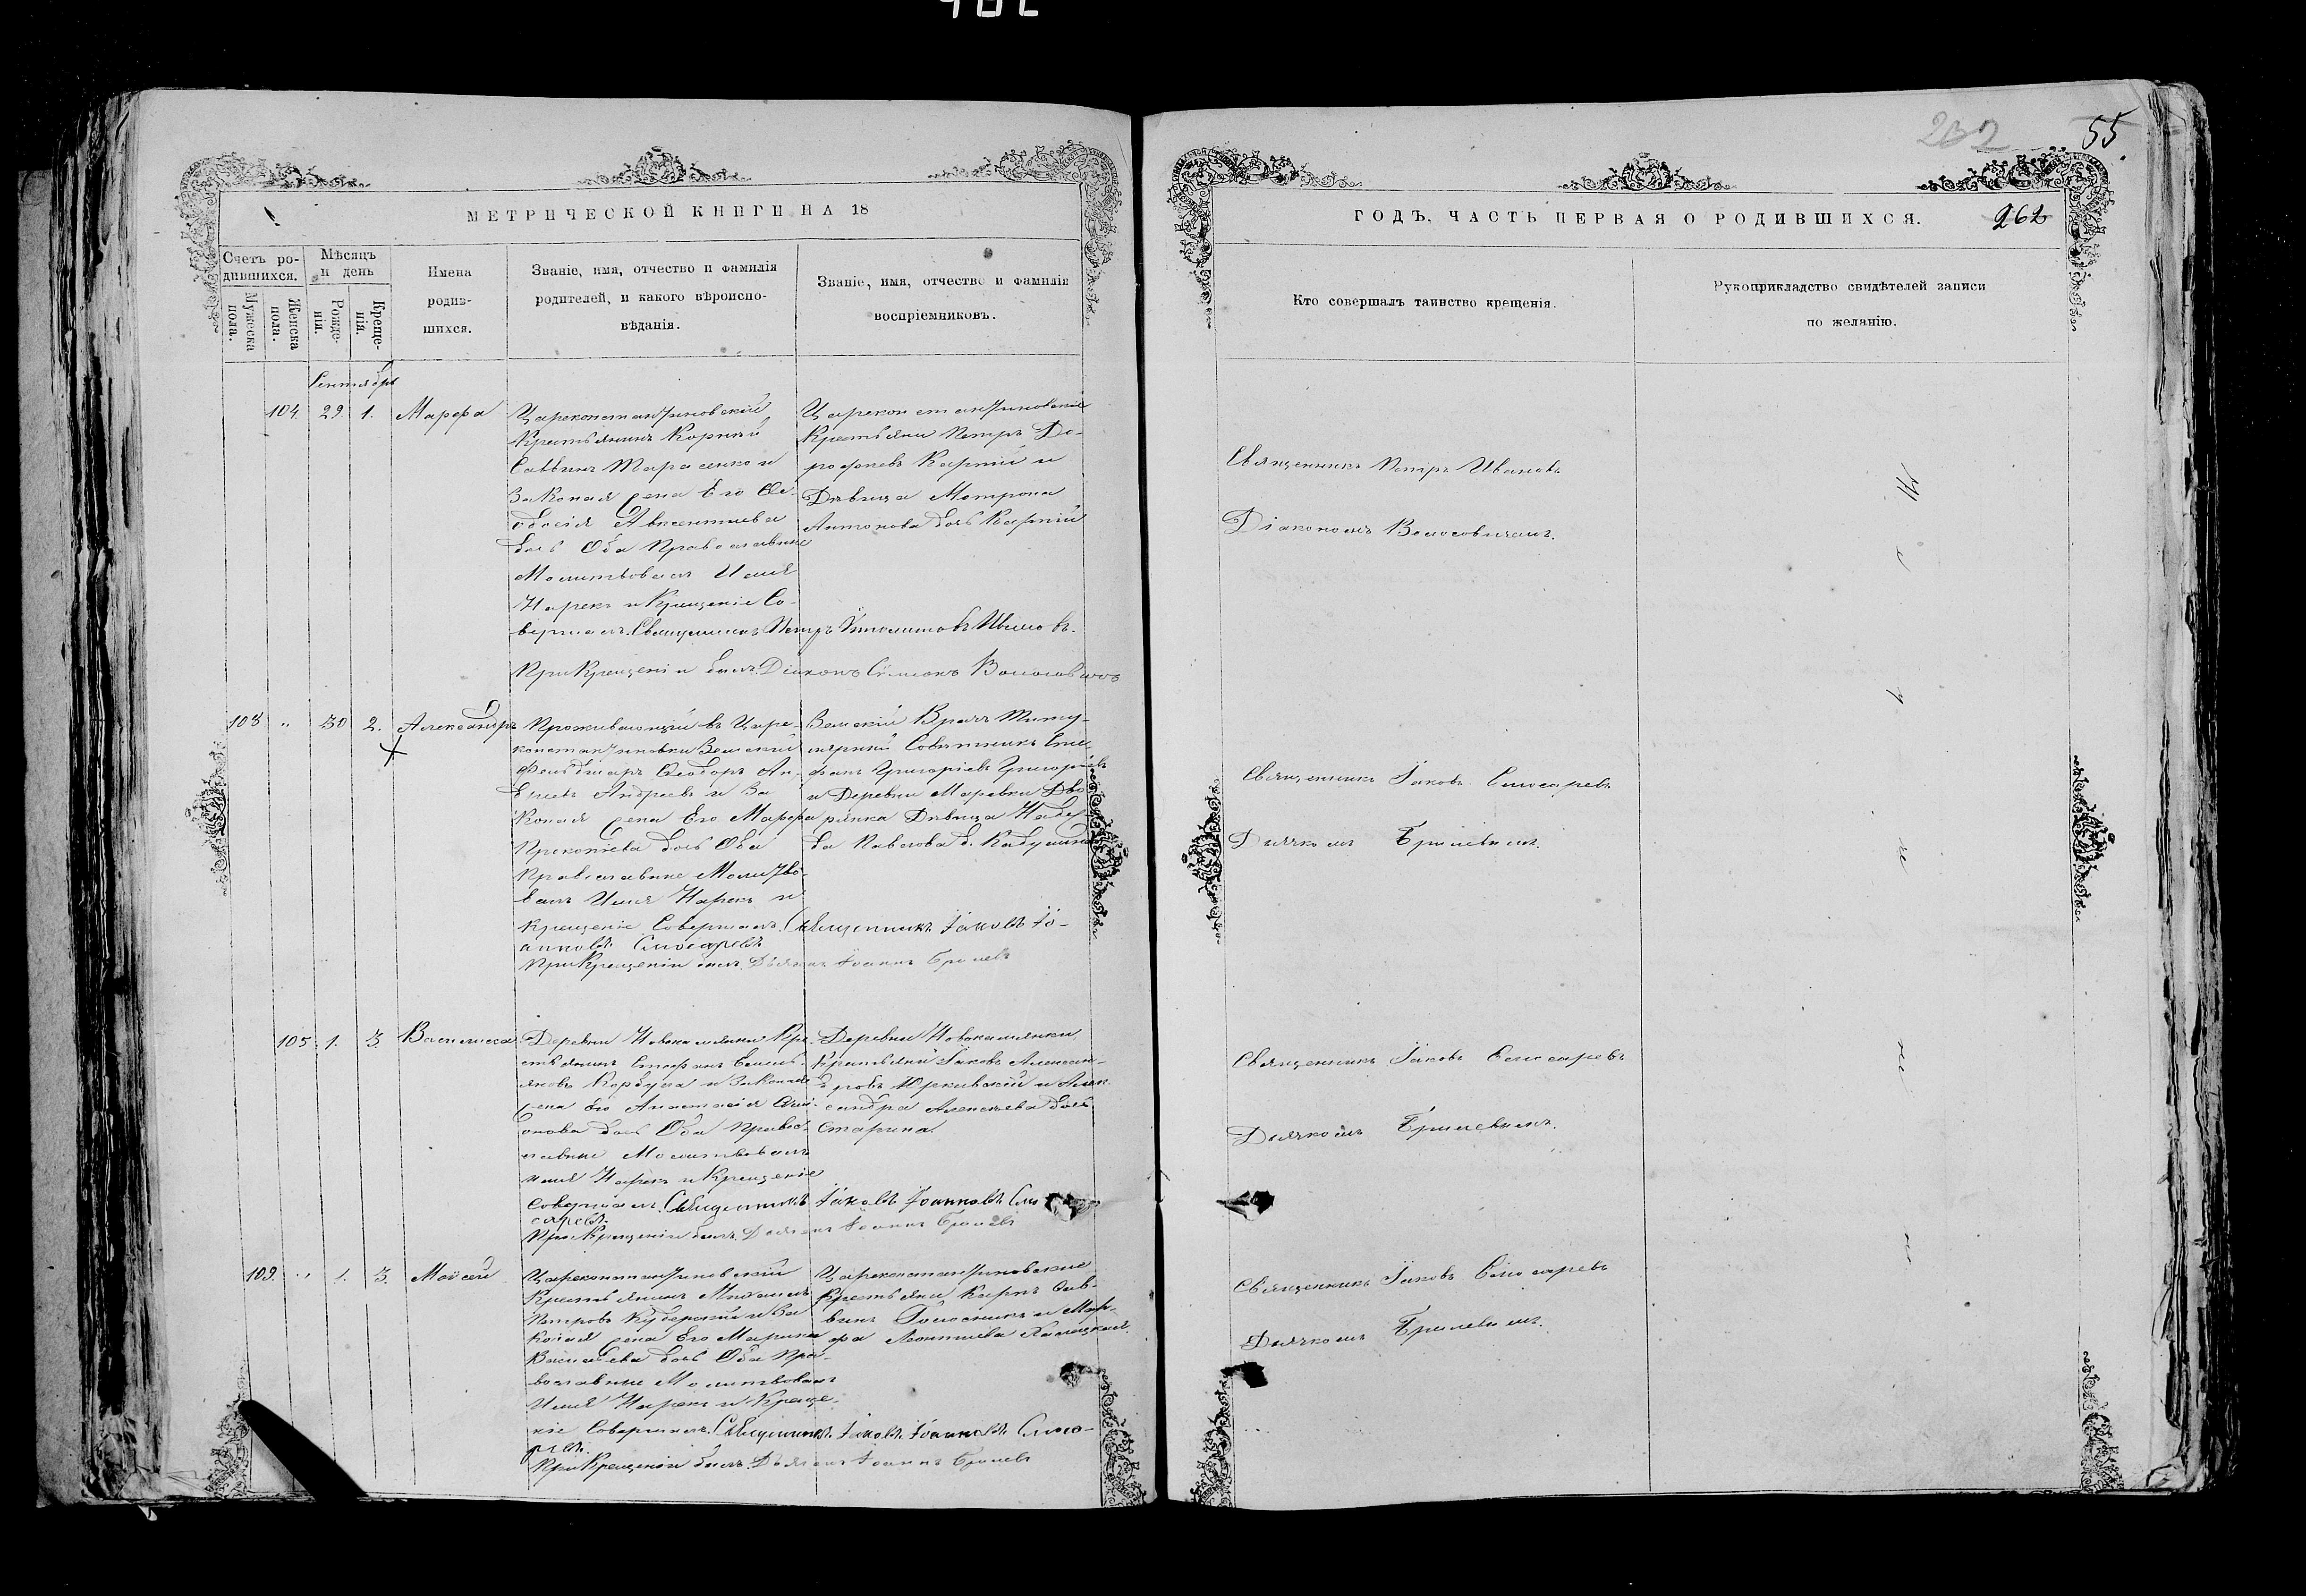 55.
262
МЕТРИЧЕСКОЙ КНИГИ НА 18
Счетъ ро-
дившихся.
Мужеска
пола.
Женска
пола.
Мѣсяцъ
и день
Рожде-
нія.
Креще-
нія.
Имена
родив-
шихся.
Званіе, имя, отчество и фамилія
родителей, и какого вѣроиспо-
вѣданія.
Званіе, имя, отчество и фамилія
воспріемниковъ.
Сентябрь
104. 29. 1. Марѳа
Цареконстантиновскій
Крестьянинъ Корній
Саввинъ Тарасенко и
Законая жена Его Ѳе-
одосія Авксентиева
дочь Оба Православные
Молитвовалъ Имя
Нарекъ и Крещеніе Со-
вершалъ. Священникъ Петръ Ивановъ.
При Крещеніи былъ Діаконъ Волосовичъ
Цареконстантиновскіе
Крестьяни Петръ До-
рофеевъ Карпій и
Дѣвица Матрона
Антонова дочь Карпій
108 " 30 2. Александръ
Проживающій въ Царе-
константиновки Земскій
Фельдшаръ Ѳеодоръ Ан-
дреевъ Андреевъ и За
Коная жена Его Марфа
Прокопіева дочь Оба
Православные Молитво-
валъ Имя Нарекъ и
Крещеніе Совершалъ. Священникъ Іаковъ Іо-
анновъ Слюсаревъ
При Крещеніи былъ Дьякъ Іоаннъ Брилевъ
Земскій Врачъ Титу-
лярный Совѣтникъ Сте
фанъ Григоріевъ Григорьевъ
и Деревни Маревки Дво
рянка Дѣвица Надеж
да Павлова д.
105. 1. 3. Василисса
Деревни Новокамянки Кре
стьянинъ Стефанъ Емель-
яновъ и Законая
жена Его Анастасія
дочь Оба Правос-
лавные Молитвовалъ
имя Нарекъ и Крещеніе
Совершалъ. Священникъ Іаковъ Іоанновъ Слю
саревъ.
При Крещеніи былъ Дьякъ Іоаннъ Брилевъ
Деревни Новокамянки
Крестьяни Іаковъ Алексан-
дровъ и Алек
сандра Алексѣева дочь
Старина.
109. " 1. 3. Моѵсей
Цареконстантиновскій
Крестьянинъ Михаилъ
Петровъ и За
Коная жена Его Марина
Васильева дочь Оба Пра-
вославные Молитвовалъ
Имя Нарекъ и Креще-
ніе Совершалъ. Священникъ Іаковъ Іоанновъ Слюса-
ревъ.
При Крещеніи былъ Дьякъ Іоаннъ Брилевъ
Цареконстантиновскіе
Крестьяни Карпъ Сав-
винъ и Мар-
фа Леонтиева
ГОДЪ, ЧАСТЬ ПЕРВАЯ О РОДИВШИХСЯ.
Кто совершалъ таинство крещенія.
Рукоприкладство свидѣтелей записи
по желанію.
Священникъ Петръ Ивановъ
Діакономъ Волосовичемъ.
Священникъ Іаковъ Слюсаревъ
Дьячкомъ Брилевымъ.
Священникъ Іаковъ Слюсаревъ
Дьячкомъ Брилевымъ.
Священникъ Іаковъ Слюсаревъ
Дьячкомъ Брилевымъ.